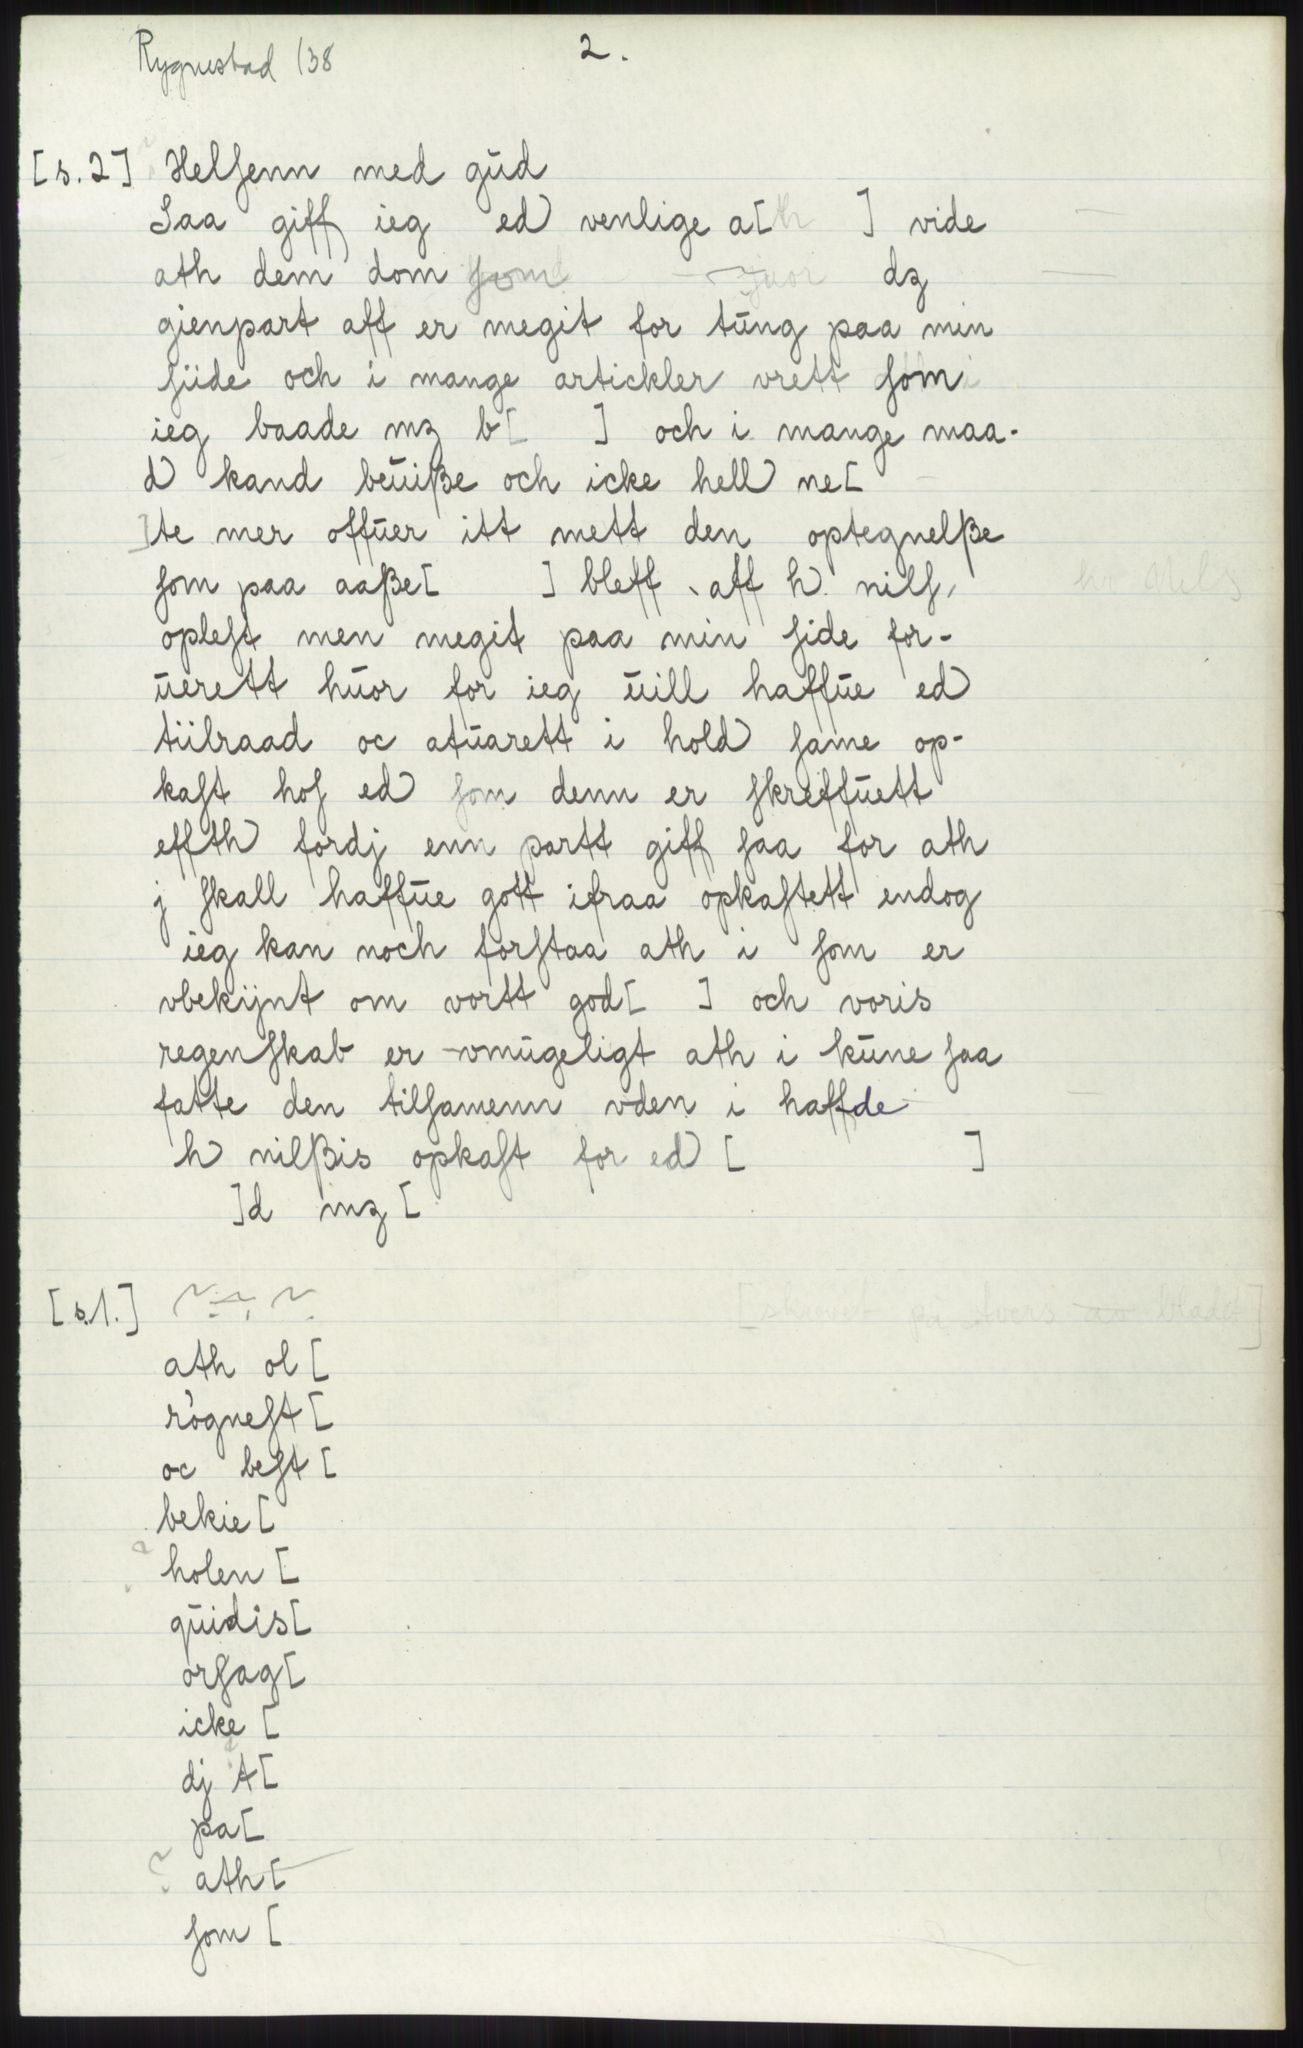 Rygnestad 138
2.
[s.2] Helſenn med gŭd
Saa giff ieg ed venlige a[th ] vide
ath dem dom ſom dʒ
gienpart aff er megit for tŭng paa min
ſiide och i mange artickler vrett ſom
ieg baade mʒ b[ ] och i mange maa-
d kand beŭiße och icke hell ne[
]te mer offŭer itt mett den optegnelße
ſom paa aaße[ ] bleff aff h nilſ, hr Nels
opleſt men megit paa min ſide for-
ŭerett hŭor for ieg ŭill haffŭe ed
tiilraad oc atŭarett i hold ſame op-
kaſt hoſ ed ſom denn er ſkreffŭett
effth fordj enn partt giff ſaa for ath
j ſkall haffŭe gott ifraa opkaſtett endog
ieg kan noch forſtaa ath i ſom er
vbekijnt om vortt god[ ] och voris
regenſkab er vmŭgeligt ath i kŭne ſaa
fatte den tilſamenn vden i haffde
h nilßis opkaſt for ed [ ]
]d mʒ [
[s.1.] [skrevet på tvers av bladet]
ath ol [
rògneſt [
oc beſt [
bekie [
? holen [
qŭidis [
orſag [
icke [
dj A [
pa [
? ath [
ſom [